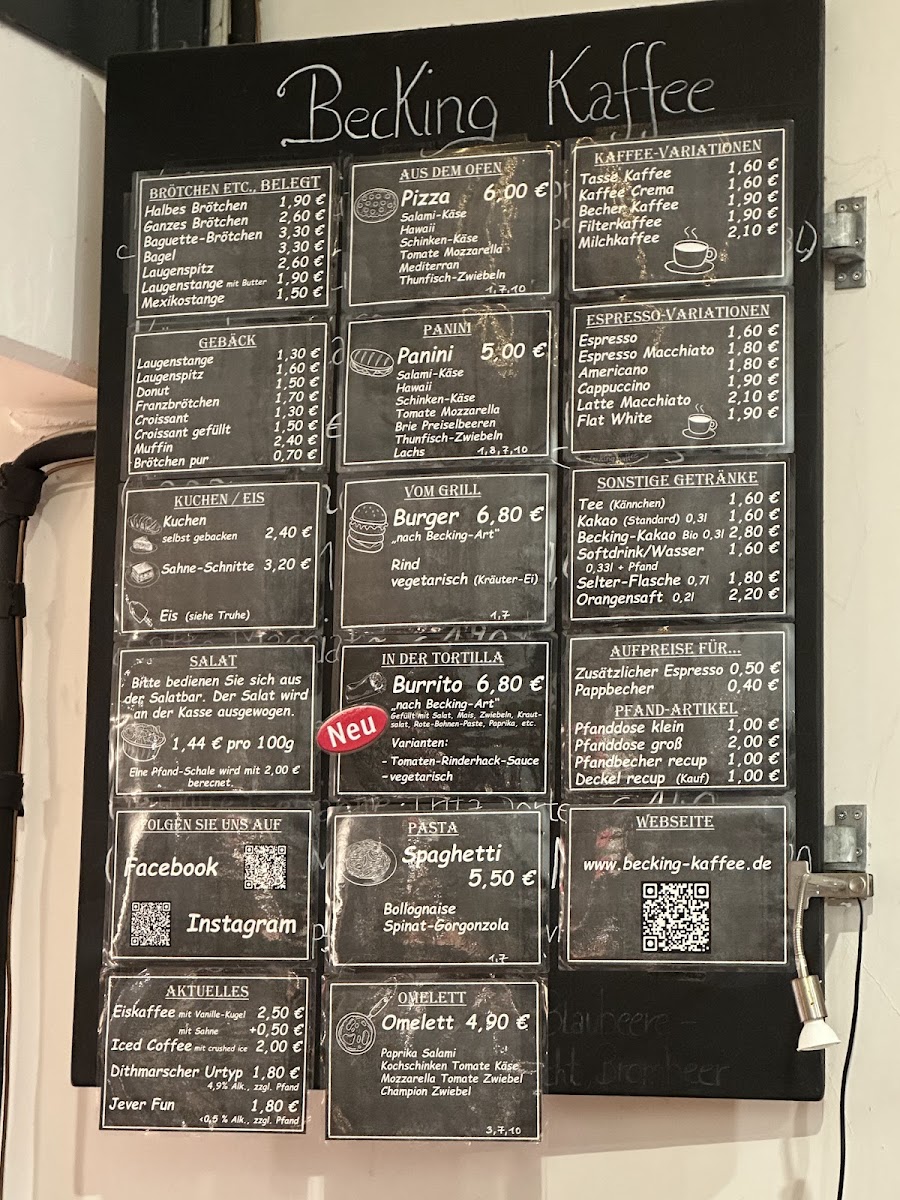 BecKing Kaffee
BRÖTCHEN ETC., BELEGT
Halbes Brötchen 1,90 €
Ganzes Brötchen 2,60 €
Baguette-Brötchen 3,30 €
Bagel 3,30 €
Laugenspitz 2,60 €
Laugenstange mit Butter 1,90 €
Mexikostange 1,50 €
GEBÄCK
Laugenstange 1,30 €
Laugenspitz 1,60 €
Donut 1,50 €
Franzbrötchen 1,70 €
Croissant 1,30 €
Croissant gefüllt 1,50 €
Muffin 2,40 €
Brötchen pur 0,70 €
KUCHEN / EIS
Kuchen
selbst gebacken 2,40 €
Sahne-Schnitte 3,20 €
Eis (siehe Truhe)
SALAT
Bitte bedienen Sie sich aus
der Salatbar. Der Salat wird
an der Kasse ausgewogen.
1,44 € pro 100g
Eine Pfand-Schale wird mit 2,00 €
berecnet.
FOLGEN SIE UNS AUF
Facebook
Instagram
AKTUELLES
Eiskaffee mit Vanille-Kugel 2,50 €
mit Sahne +0,50 €
Iced Coffee mit crushed ice 2,00 €
Dithmarscher Urtyp 1,80 €
4,9% Alk., zzgl. Pfand
Jever Fun 1,80 €
<0,5 % Alk., zzgl. Pfand
AUS DEM OFEN
Pizza 6,00 €
Salami-Käse
Hawaii
Schinken-Käse
Tomate Mozzarella
Mediterran
Thunfisch-Zwiebeln
1,7,10
PANINI
Panini 5,00 €
Salami-Käse
Hawaii
Schinken-Käse
Tomate Mozzarella
Brie Preiselbeeren
Thunfisch-Zwiebeln
Lachs 1,8,7,10
VOM GRILL
Burger 6,80 €
„nach Becking-Art"
Rind
vegetarisch (Kräuter-Ei)
1,7
IN DER TORTILLA
Burrito 6,80 €
„nach Becking-Art"
Gefüllt mit Salat, Mais, Zwiebeln, Kraut-
salat, Rote-Bohnen-Paste, Paprika, etc.
Neu
Varianten:
- Tomaten-Rinderhack-Sauce
- vegetarisch
PASTA
Spaghetti
5,50 €
Bollognaise
Spinat-Gorgonzola
1,7
OMELETT
Omelett 4,90 €
Paprika Salami
Kochschinken Tomate Käse
Mozzarella Tomate Zwiebel
Champion Zwiebel
3,7,10
KAFFEE-VARIATIONEN
Tasse Kaffee 1,60 €
Kaffee Crema 1,60 €
Becher Kaffee 1,90 €
Filterkaffee 1,90 €
Milchkaffee 2,10 €
ESPRESSO-VARIATIONEN
Espresso 1,60 €
Espresso Macchiato 1,80 €
Americano 1,80 €
Cappuccino 1,90 €
Latte Macchiato 2,10 €
Flat White 1,90 €
SONSTIGE GETRÄNKE
Tee (Kännchen) 1,60 €
Kakao (Standard) 0,3l 1,60 €
Becking-Kakao Bio 0,3l 2,80 €
Softdrink/Wasser 1,60 €
0,33l + Pfand
Selter-Flasche 0,7l 1,80 €
Orangensaft 0,2l 2,20 €
AUFPREISE FÜR...
Zusätzlicher Espresso 0,50 €
Pappbecher 0,40 €
PFAND-ARTIKEL
Pfanddose klein 1,00 €
Pfanddose groß 2,00 €
Pfandbecher recup 1,00 €
Deckel recup (Kauf) 1,00 €
WEBSEITE
www.becking-kaffee.de